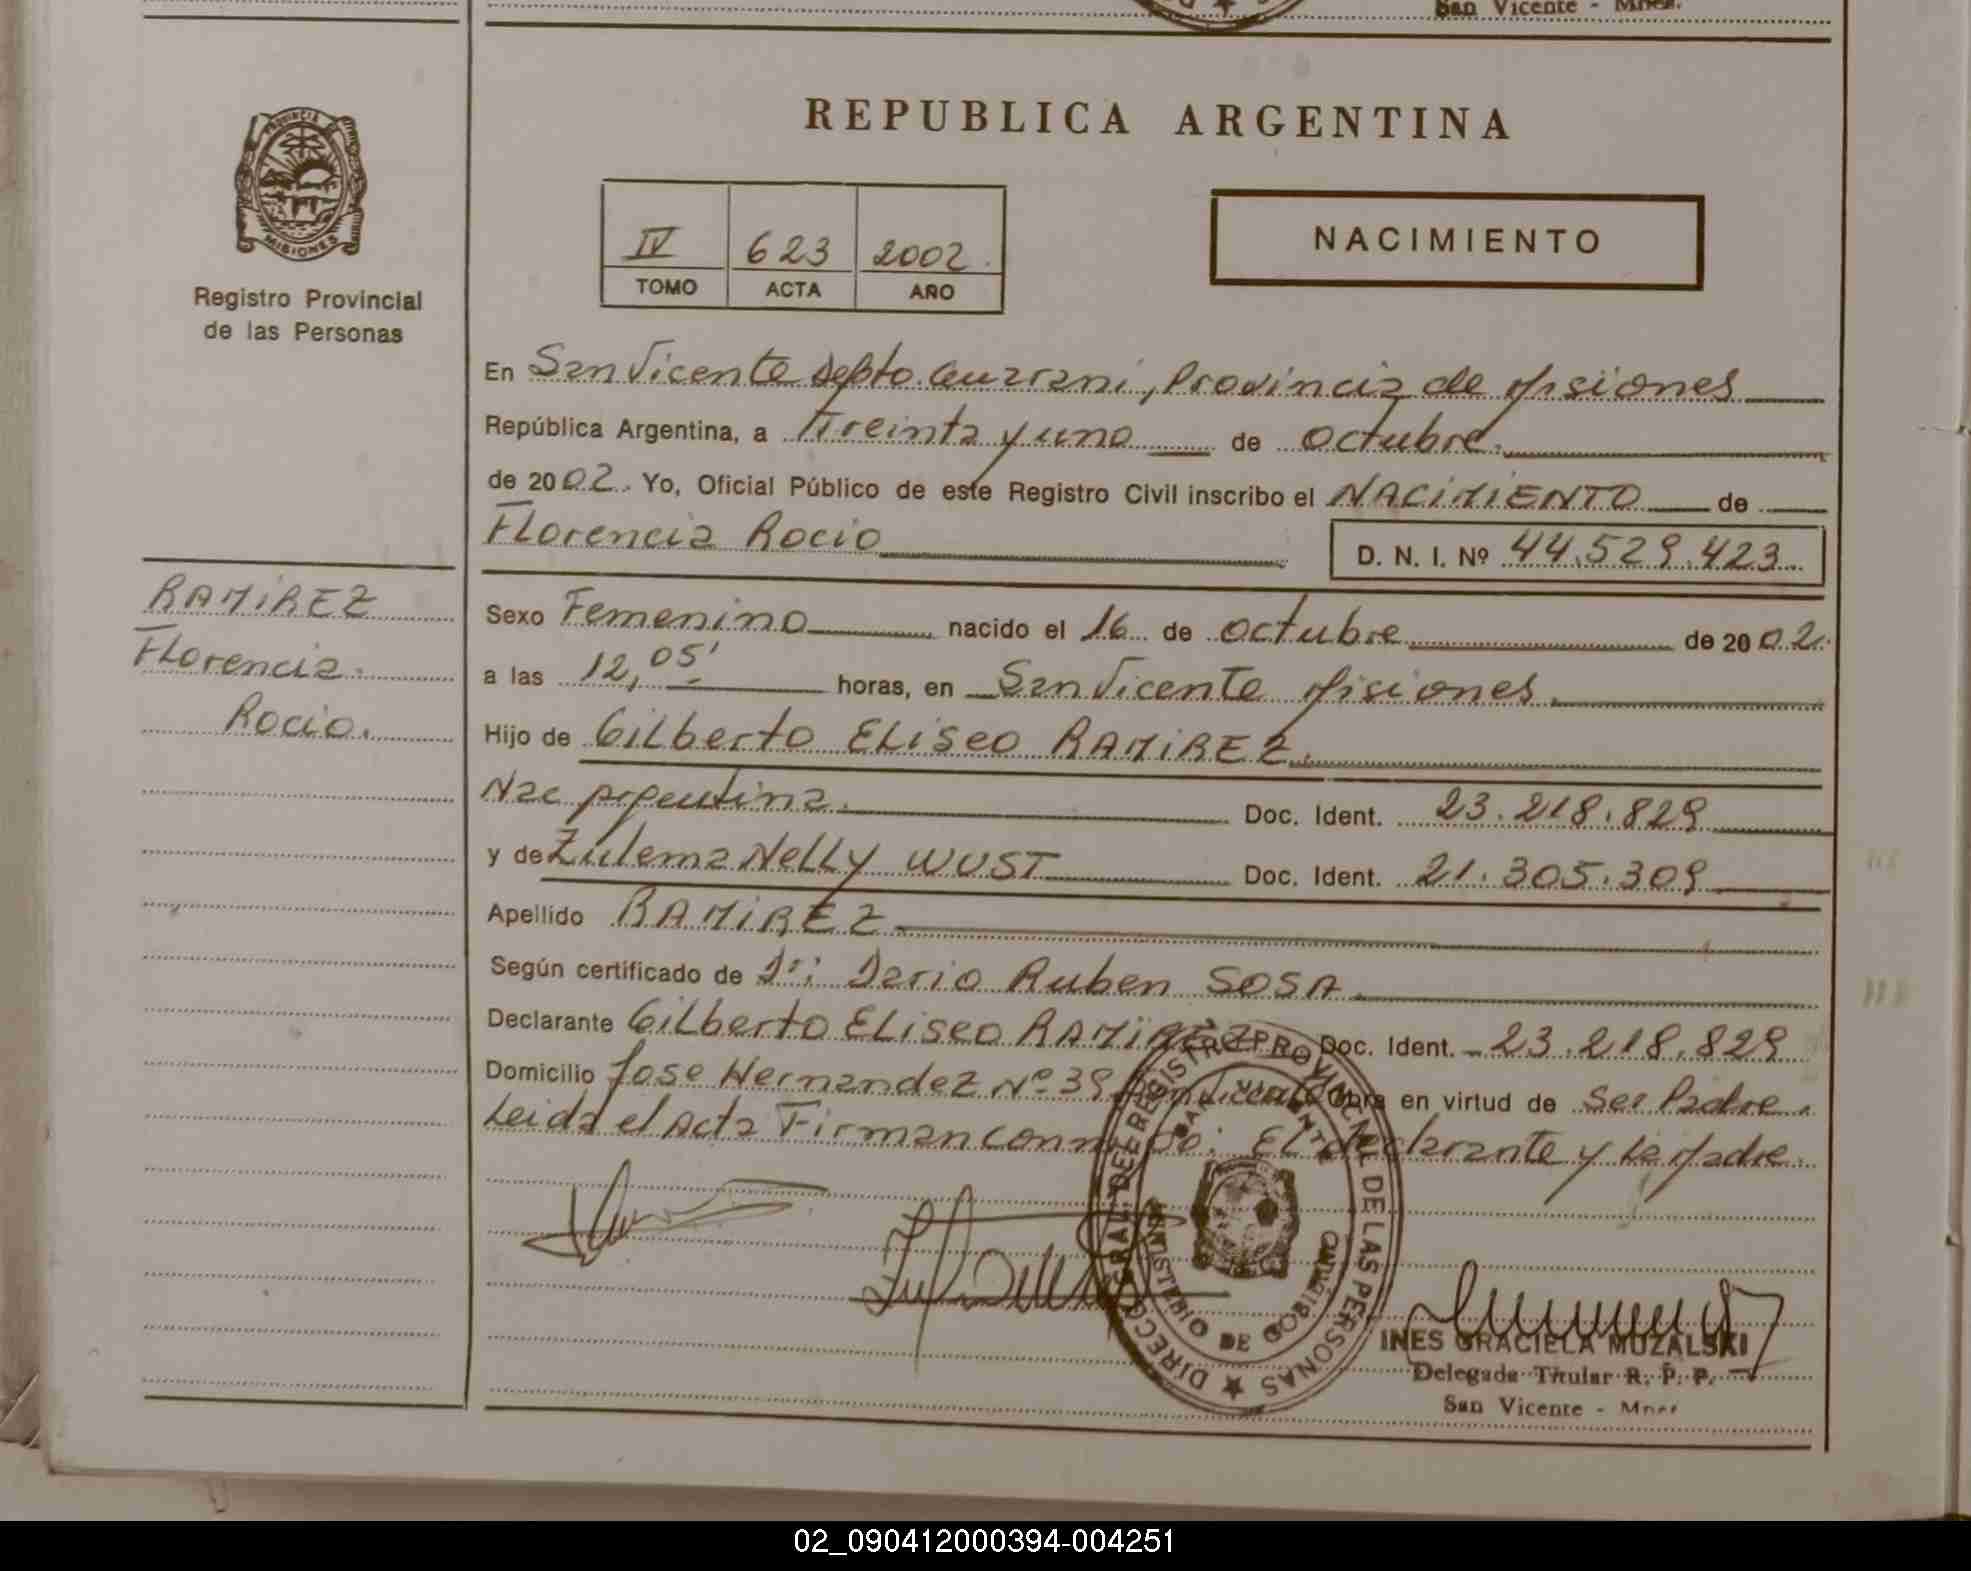 San Vicente - Mnes.
REPUBLICA ARGENTINA
PROVINCIA DE
MISIONES
Registro Provincial
de las Personas
IV 623 2002.
TOMO ACTA AÑO
NACIMIENTO
En San Vicente Depto. Guarani, Provincia de Misiones
República Argentina, a Treinta y uno de octubre.
de 2002. Yo, Oficial Público de este Registro Civil inscribo el NACIMIENTO de
Florencia Rocio
D. N. I. Nº 44.529.423
RAMIREZ
Florencia
Rocio.
Sexo Femenino nacido el 16 de octubre de 2002.
a las 12,05' horas, en San Vicente Misiones
Hijo de Gilberto Eliseo RAMIREZ.
Nac Argentina. Doc. Ident. 23.218.829
y de Zulema Nelly WUST Doc. Ident. 21.305.309
Apellido RAMIREZ
Según certificado de Dr: Dario Ruben SOSA
Declarante Gilberto Eliseo RAMIREZ Doc. Ident. 23.218.829
Domicilio Jose Hernandez Nº 39 San Vicente Obra en virtud de Ser Padre.
Leida el Acta Firman conmigo: El declarante y La Madre.
DIREC. GRAL. DEL REGISTRO PROVINCIAL DE LAS PERSONAS
SAN VICENTE
MINISTERIO DE GOBIERNO
INES GRACIELA MUZALSKI
Delegada Titular R. P. P.
San Vicente - Mnes
02_090412000394-004251